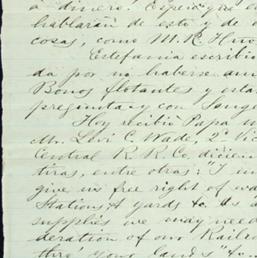 a dinero. Espero que
hablarán de esto y de o
cosas, como M. R.
Estefania escribio
da por no haberse
Bonos flotantes y esta
pregunta y con
Hoy recibio Papa un
Mr. Levi C. Wade, 2º Vic
Central R. R. Co. dicien
tiras, entre otras: "I
give us free right of wa
Stations & yards &c. &
supplies we may need
deration of our Railro
thro' your lands"